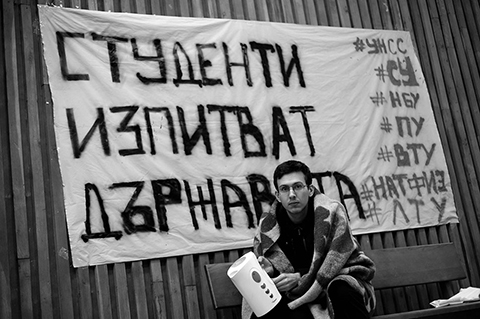 СТУДЕНТИ
ИЗПИТВАТ
ДЪРЖАВАТА
#УНСС
#СУ
#НБУ
#ПУ
#ВТУ
#НАТФИЗ
#ЛТУ